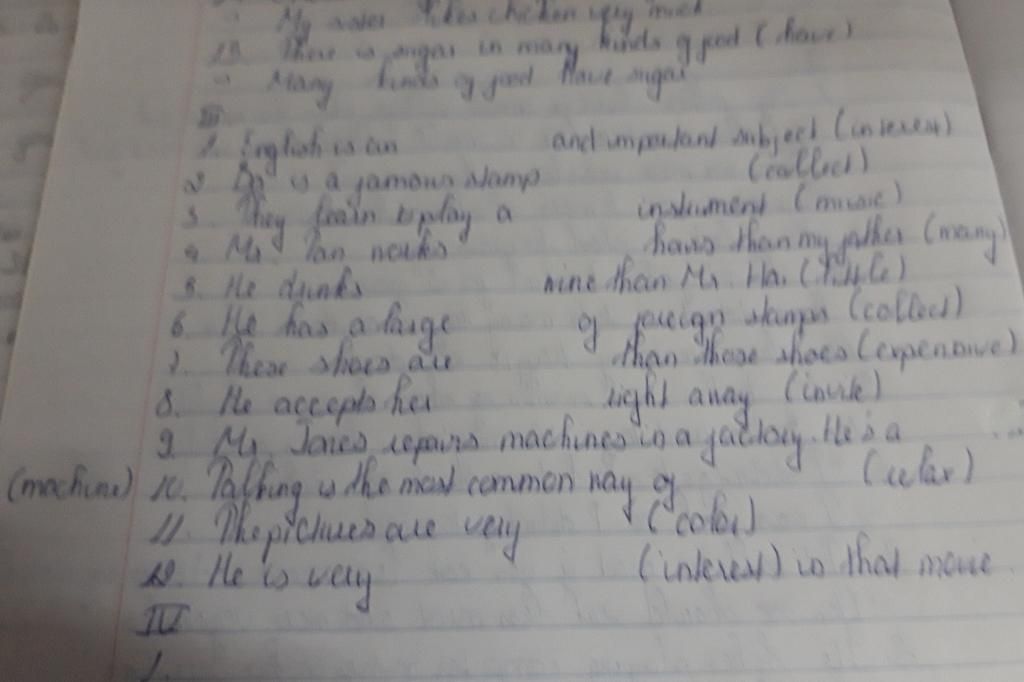 My sister likes chicken very much
13. There is sugar in many kinds of food (have)
Many kinds of food have sugar
III
1. English is an and important subject (interest)
2. is a famous stamp (collect)
3. They learn to play a instrument (music)
4. Mr. Tan works hours than my father (many)
5. He drinks wine than Mr. Ha. (little)
6. He has a large of foreign stamps (collect)
7. These shoes are than those shoes (expensive)
8. He accepts her right away (invite)
9. Mr. Jones repairs machines in a factory. He is a ...
(machine) 10. Talking is the most common way of (relax)
11. The pictures are very (color)
12. He is very (interest) in that movie
IV
1.